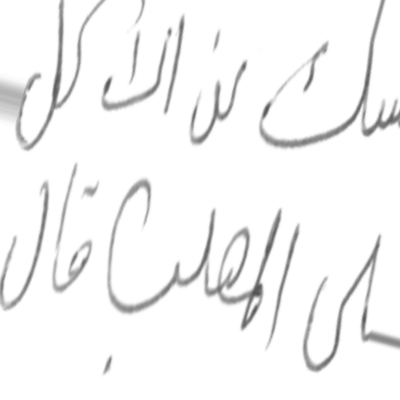 سك عن الاكل
على المهلب قال